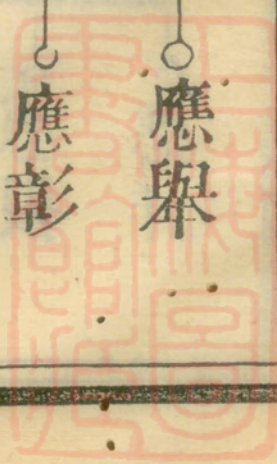 應舉
應彰